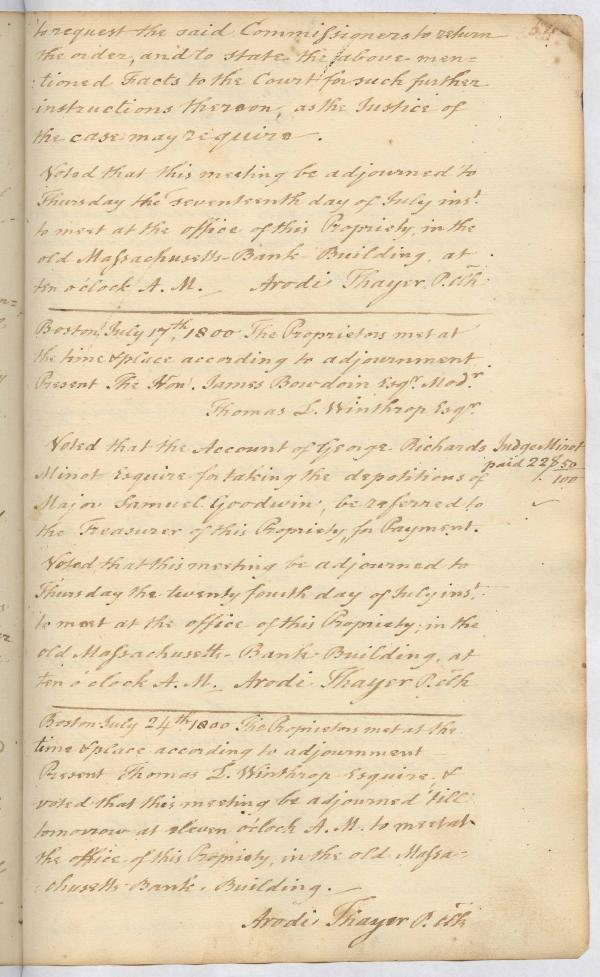 to request the said Commissioners to return
the order, and to state the above men=
:tioned Facts to the Court for such further
instructions thereon, as the Justice of
the case may require.
Voted that this meeting be adjourned to
Thursday the seventeenth day of July inst.
to meet at the office of this Propriety, in the
old Massachusetts-Bank-Building, at
ten o'clock A.M. Arodi Thayer P. Clk
Boston July 17th, 1800 The Proprietors met at
the time & place according to adjournment
Present The Hon. James Bowdoin Esqr. Modr.
Thomas L. Winthrop Esqr.
Voted that the Account of George Richards
Minot Esquire for taking the depotitions of
Major Samuel Goodwin, be referred to
the Treasurer of this Propriety, for Payment.
Judge Minot
paid 22$ 50/100
Voted that this meeting be adjourned to
Thursday the twenty fourth day of July inst.
to meet at the office of this Propriety, in the
old Massachusetts-Bank-Building, at
ten o'clock A.M. Arodi Thayer P. Clk
Boston July 24th, 1800 The Proprietors met at the
time & place according to adjournment
Present Thomas L. Winthrop Esquire, &
voted that this meeting be adjourned 'till
tomorrow at eleven o'clock A.M. to meet at
the office of this Propriety, in the old Massa-
:chusetts-Bank-Building.
Arodi Thayer P. Clk